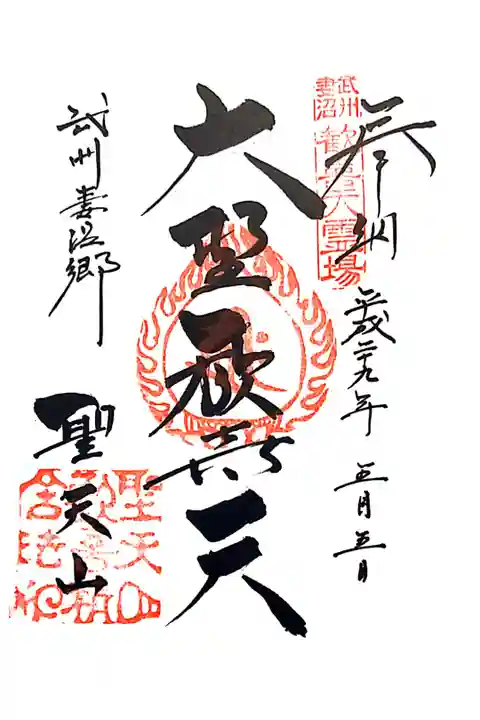 奉納
平成二十九年
五月五日
武州
妻沼
歓喜天霊場
大聖歓喜天
武州妻沼郷
聖天山